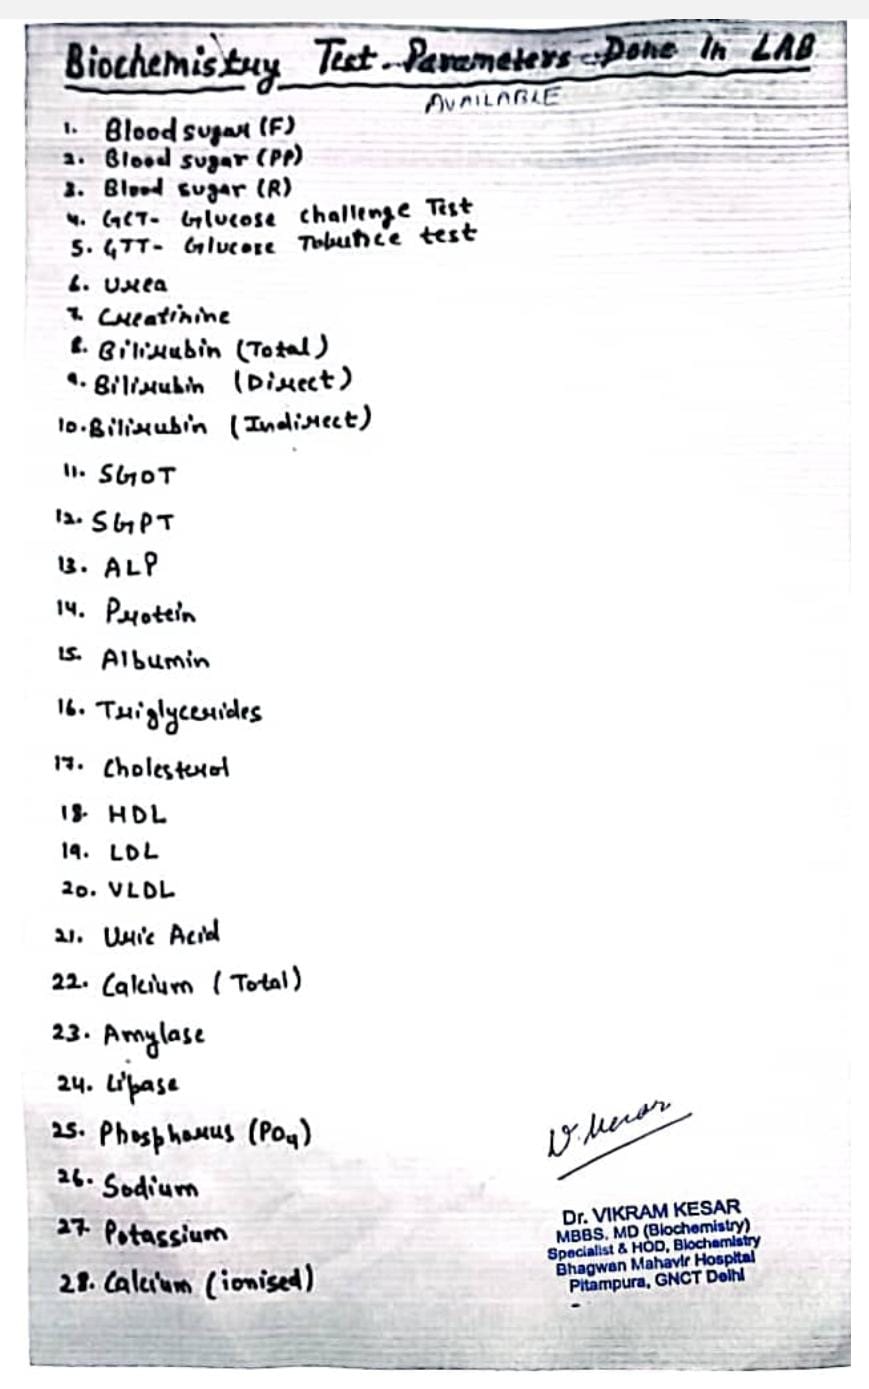 Biochemistry Test Parameters Done In LAB
AVAILABLE
1. Blood sugar (F)
2. Blood sugar (PP)
3. Blood sugar (R)
4. GCT- Glucose challenge Test
5. GTT- Glucose test
6. Urea
7. Creatinine
8. Bilirubin (Total)
9. Bilirubin (Direct)
10. Bilirubin (Indirect)
11. SGOT
12. SGPT
13. ALP
14. Protein
15. Albumin
16. Triglycerides
17. Cholesterol
18. HDL
19. LDL
20. VLDL
21. Uric Acid
22. Calcium (Total)
23. Amylase
24. Lipase
25. Phosphorus (PO4)
26. Sodium
27. Potassium
28. Calcium (ionised)
V. Kesar
Dr. VIKRAM KESAR
MBBS. MD (Biochemistry)
Specialist & HOD, Biochemistry
Bhagwan Mahavir Hospital
Pitampura, GNCT Delhi